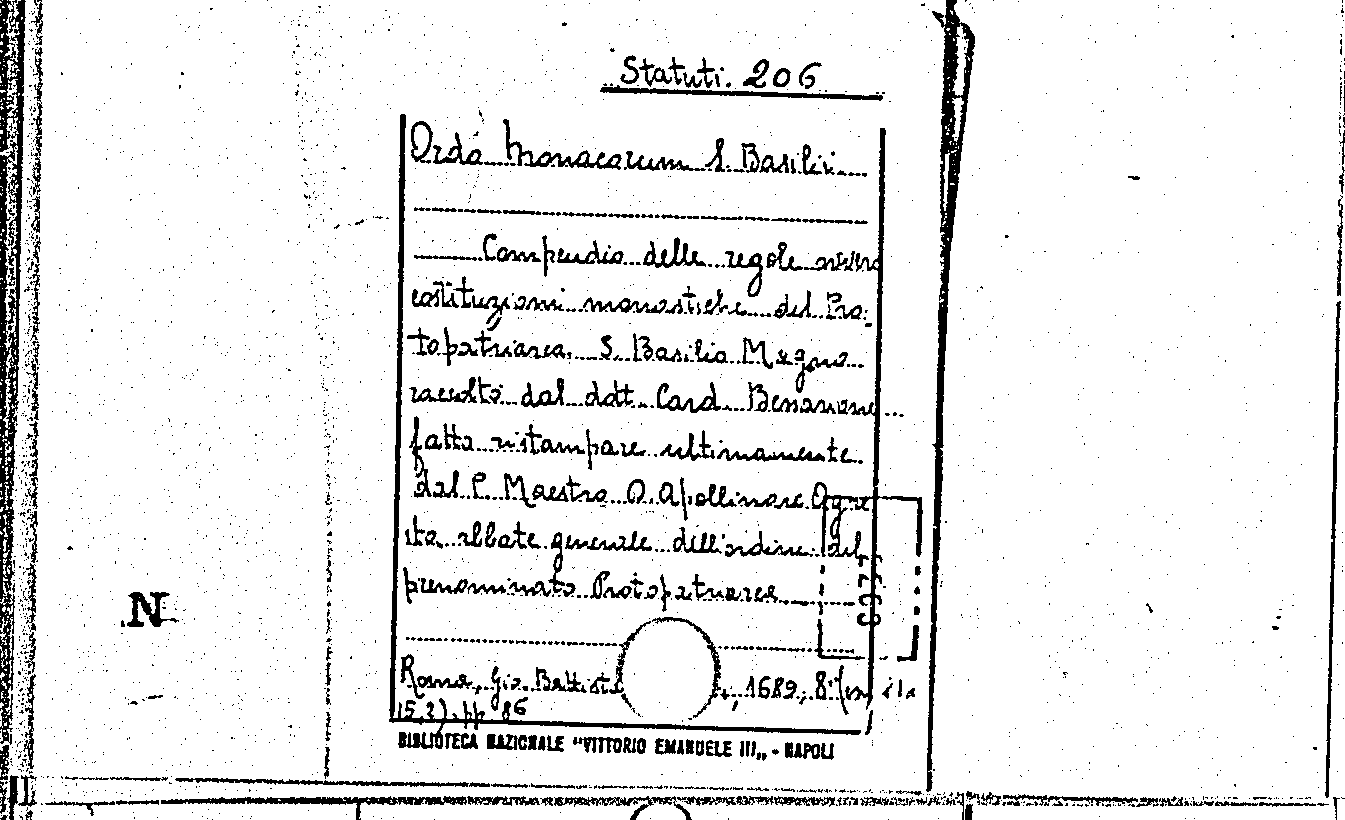 Statuti. 206
Ordo Monacorum S. Basilii
Compendio delle regole ovvero
costituzioni monastiche del Pro-
topatriarca S. Basilio Magno
raccolto dal dott. Card. Besarione
fatto ristampare ultimamente
dal P. Maestro D. Apollinare Agre
sta abbate generale dell'ordine del
prenominato Protopatriarca
Roma, Gio. Battist , 1689, 8°
15,2). pp 86
N
BIBLIOTECA NAZIONALE "VITTORIO EMANUELE III„ - NAPOLI